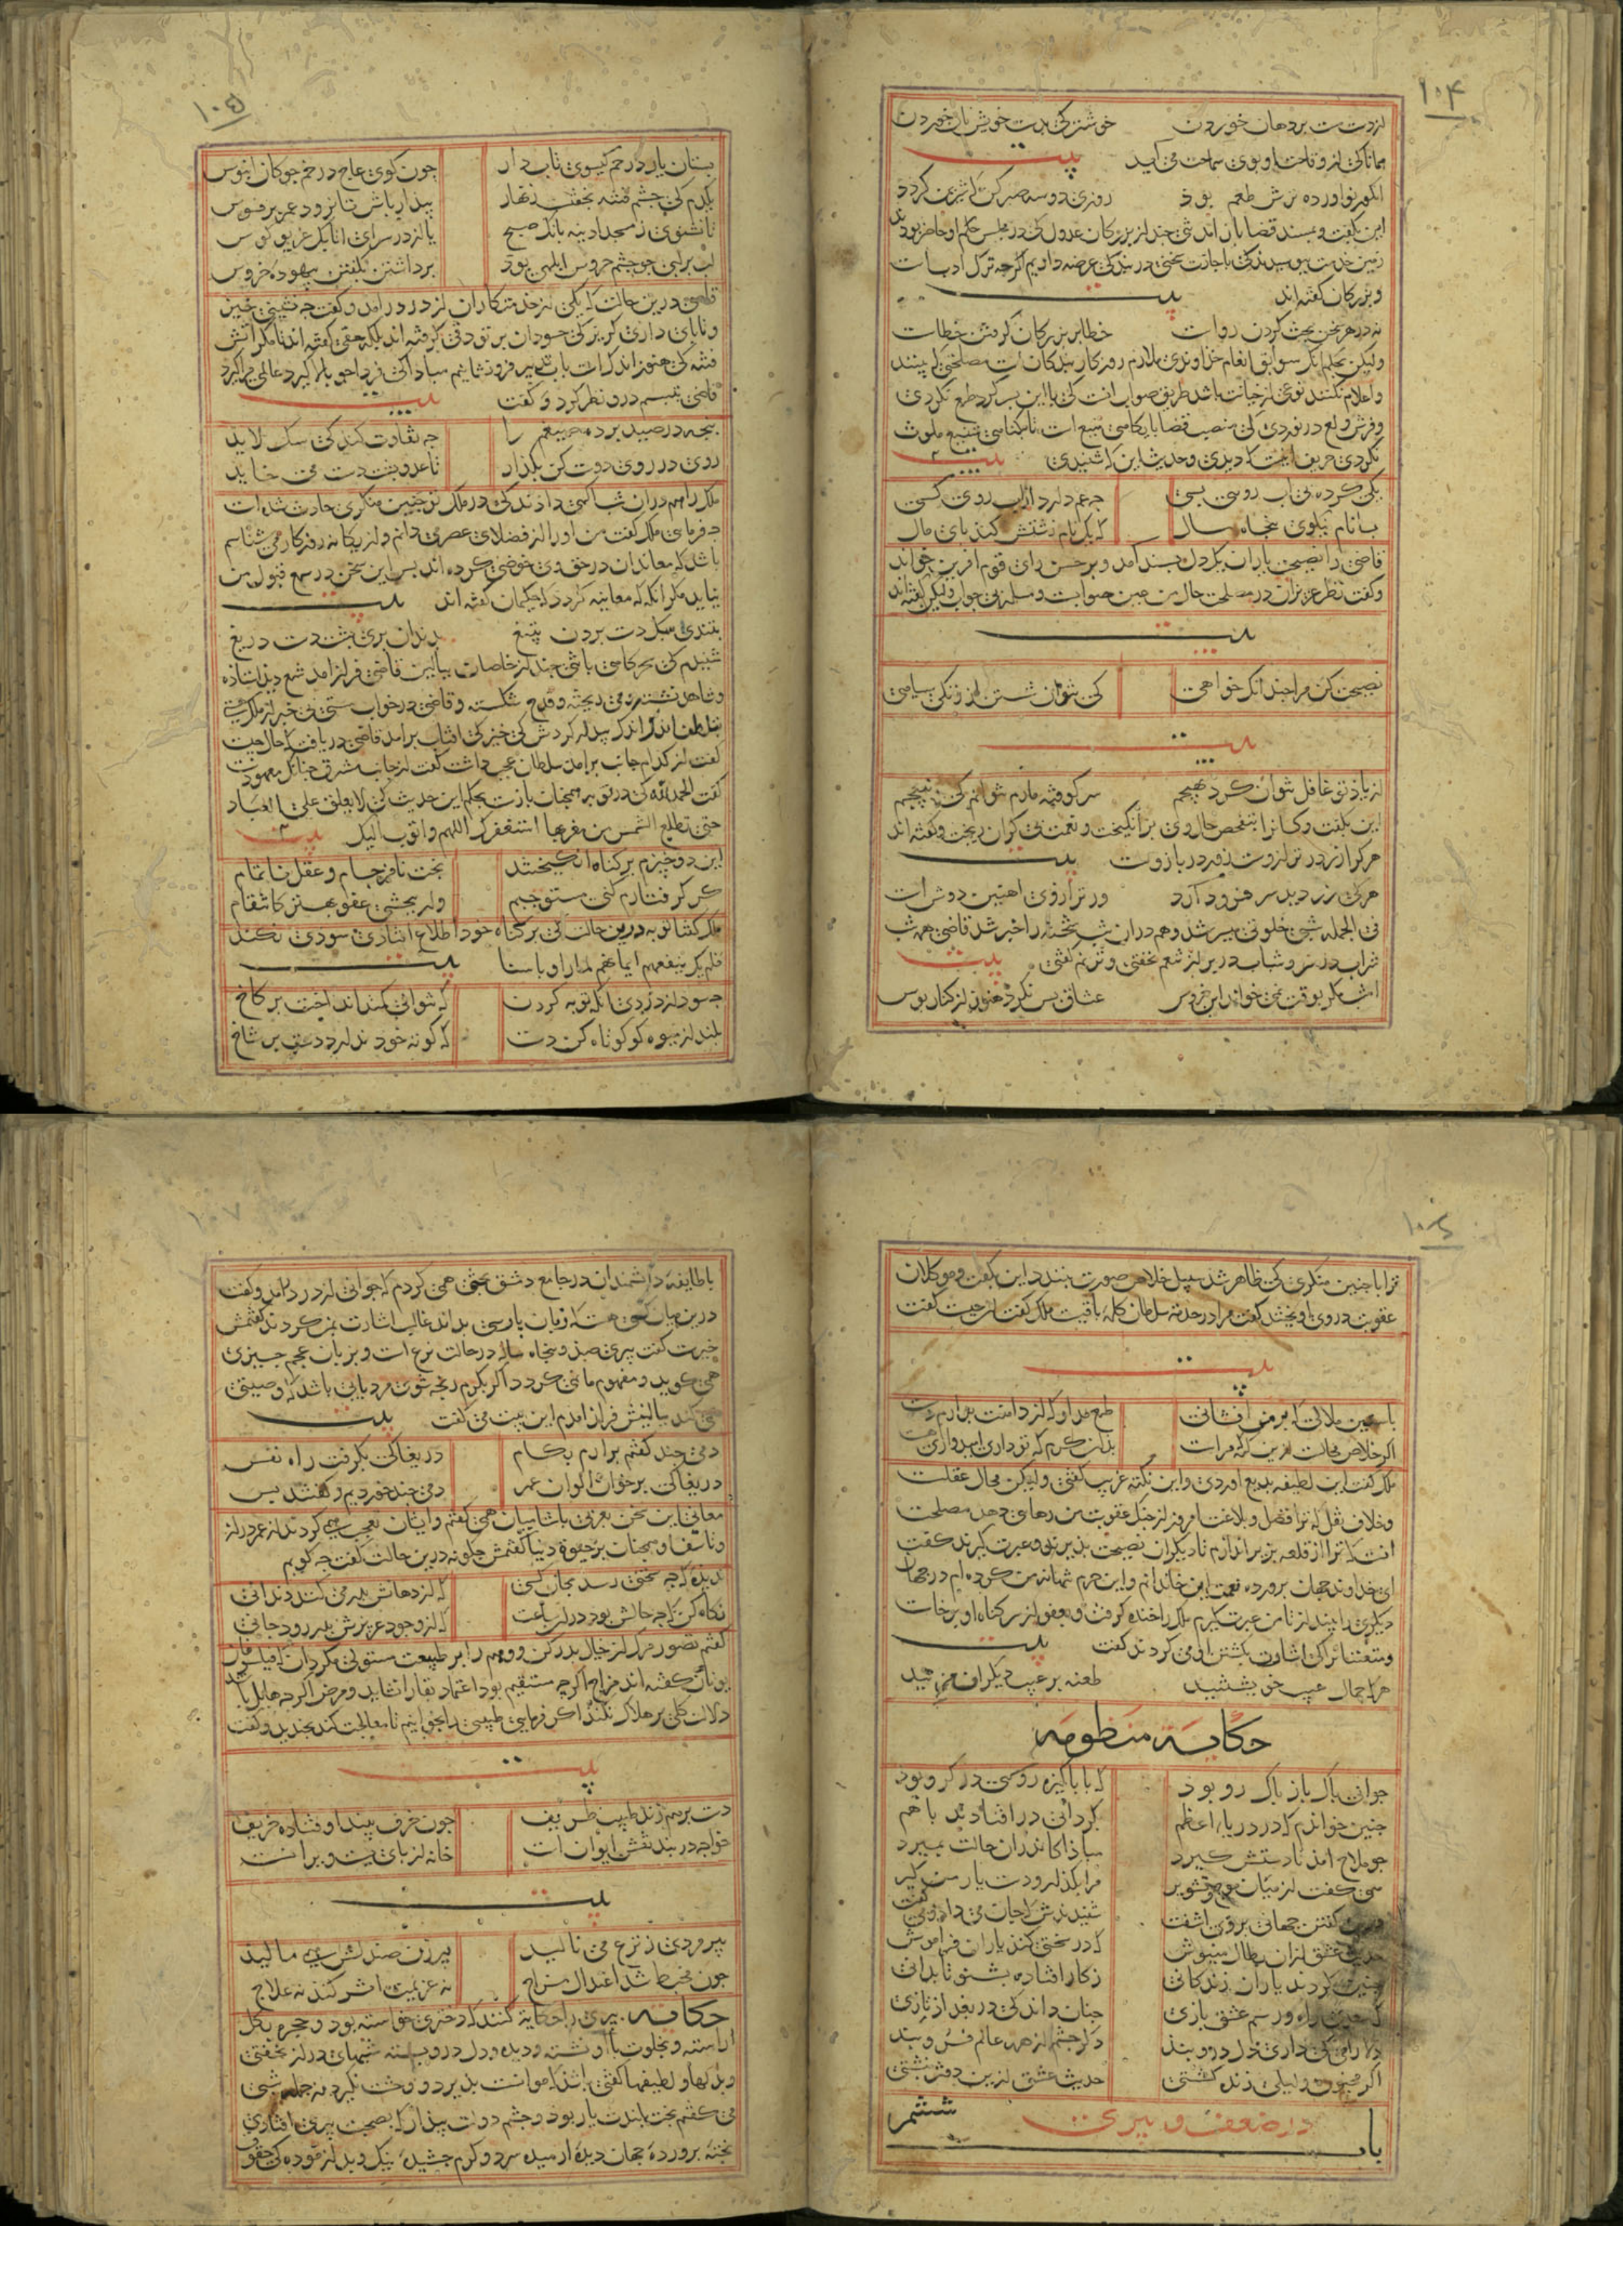 ۱۰۴
از دست تو مشت بر دهان خوردن خوشتر که بدست خویش نان خوردن
همانا کی از وقاحت او بوی سماحت می آید بیت
انگور نو آورده ترش طعم بود روزی دو سه صبر کن که شیرین گردد
این بگفت و بمسند قضا باز آمد تنی چند از بزرگان عدول کی در مجلس حکم او حاضر بودند
زمین خدمت ببوسیدند کی باجازت سخنی در بندگی عرضه داریم اگرچه ترک ادبست
و بزرگان گفته اند بیت
نه در هر سخن بحث کردن رواست خطا بر بزرگان گرفتن خطاست
ولیکن بحکم آنک سوابق انعام خداوندی ملازم روزگار بندگان است مصلحتی که بینند
و اعلام نکنند نوعی از خیانت باشد طریق صواب آنست کی با این پسر گرد طمع نگردی
و فرش ولع در نوردی کی منصب قضا پایگاهی منیع است تا بگناهی شنیع ملوث
نگردی حریف اینست که دیدی و حدیث این که شنیدی بیت
یکی کرده بی آب رویی بسی چه غم دارد از آب روی کسی
بسا نام نیکوی پنجاه سال که یک نام زشتش کند پای مال
قاضی را نصیحت یاران یک دل پسند آمد و بر حسن رای قوم آفرین خواند
و گفت نظر عزیزان در مصلحت حال من عین صوابست و مسئله بی جواب ولیکن گفته اند
بیت
نصیحت کن مرا چندانک خواهی کی نتوان شستن از زنگی سیاهی
بیت
از یاد تو غافل نتوان کرد بهیچم سر کوفته مارم نتوانم کی نپیچم
این بگفت و کسانرا بتفحص حال وی برانگیخت و نعمت بی کران بریخت و گفته اند
هر کرا زر در ترازوست زور در بازوست بیت
هر کی زر دید سر فرود آرد ور ترازوی آهنین دوش است
فی الجمله شبی خلوتی میسر شد و هم در آن شب شحنه را خبر شد قاضی همه شب
شراب در سر و شباب در بر از تنعم نخفتی و ترنم گفتی بیت
امشب مگر بوقت نمی خواند این خروس عشاق بس نکرد هنوز از کنار بوس
۱۰۵
پستان یار در خم گیسوی تاب دار چون گوی عاج در خم چوگان آبنوس
یکدم کی چشم فتنه بخفتست زنهار بیدار باش تا نرود عمر بر فسوس
تا نشنوی ز مسجد آدینه بانگ صبح یا از در سرای اتابک غریو کوس
لب بر لبی چو چشم خروس ابلهی بود برداشتن بگفتن بیهوده خروس
قاضی درین حالت که یکی از خدمتکاران از در درآمد و گفت چه نشینی خیز
و تا پای داری گریز کی حسودان بر تو دقی گرفته اند بلکه حقی گفته اند تا مگر آتش
فتنه کی هنوز اندکست بآب تدبیر فرو نشانیم مبادا کی فردا چو بالا گیرد عالمی فرا گیرد
قاضی بتبسم درو نظر کرد و گفت بیت
پنجه در صید برده ضیغم را چه تفاوت کند کی سگ لاید
روی در روی دوست کن بگذار تا عدو پشت دست می خاید
ملک را هم در آن شب آگهی دادند کی در ملک تو چنین منکری حادث شده است
چه فرمایی ملک گفت من او را از فضلای عصر می دانم و از یگانه روزگار می شناسم
باشد که معاندان در حق وی خوضی کرده اند پس این سخن در سمع قبول من
نیاید مگر آنگه که معاینه گردد که حکیمان گفته اند بیت
بتندی سبک دست بردن بتیغ بدندان بری پشت دست دریغ
شنیدم کی سحرگاهی با تنی چند از خاصان ببالین قاضی فراز آمد شمع دید ایستاده
و شاهد نشسته و می ریخته و قدح شکسته و قاضی در خواب مستی بی خبر از ملک هستی
بلطف اندک اندک بیدار کردش کی خیز کی آفتاب برآمد قاضی دریافت که حال چیست
گفت از کدام جانب برآمد سلطان عجب داشت گفت از جانب مشرق چنانک معهودست
گفت الحمد لله کی در توبه همچنان بازست بحکم این حدیث کی لا یغلق علی العباد
حتی تطلع الشمس من مغربها استغفرک اللهم و اتوب الیک بیت
این دو چیزم بر گناه انگیختند بخت نافرجام و عقل ناتمام
گر گرفتارم کنی مستوجبم ور ببخشی عفو بهتر کانتقام
ملک گفتا توبه درین حالت کی بر گناه خود اطلاع افتادی سودی نکند
فلم یک ینفعهم ایمانهم لما راوا باسنا بیت
چه سود از دزدی آنگه توبه کردن که نتوانی کمند انداخت بر کاخ
بلند از میوه گو کوتاه کن دست که کوته خود ندارد دست بر شاخ
۱۰۶
ترا با چنین منکری کی ظاهر شد سبیل خلاص صورت نبندد این بگفت و موکلان
عقوبت در وی آویختند گفت مرا در خدمت سلطان کلمه باقیست ملک گفت آن چیست گفت
بیت
بآستین ملالی که بر من افشانی طمع مدار که از دامنت بدارم دست
اگر خلاص محالست ازین گنه مراست بدان کرم که تو داری امیدواری هست
ملک گفت این لطیفه بدیع آوردی و این نکته غریب گفتی ولیکن محال عقلست
و خلاف نقل که ترا فضل و بلاغت امروز از چنگ عقوبت من رهایی دهد مصلحت
آنست که ترا از قلعه بزیر اندازم تا دیگران نصیحت پذیرند و عبرت گیرند گفت
ای خداوند جهان پرورده نعمت این خاندانم و این جرم تنها نه من کرده ام در جهان
دیگری را بینداز تا من عبرت گیرم ملک را خنده گرفت و بعفو از سر گناه او برخاست
و متعنتانرا کی اشارت بکشتن او می کردند گفت بیت
هر که حمال عیب خویشتنید طعنه بر عیب دیگران مزنید
حکایه منظومه
جوانی پاک باز پاک رو بود که با پاکیزه رویی در گرو بود
چنین خواندم که در دریاء اعظم بگردابی در افتادند با هم
چو ملاح آمد تا دستش گیرد مبادا کاندر آن حالت بمیرد
همی گفت از میان موج و تشویر مرا بگذار و دست یار من گیر
درین گفتن جهانی بر وی آشفت شنیدندش که جان می داد و می گفت
حدیث عشق از آن بطال منیوش که در سختی کند یاران فراموش
چنین کردند یاران زندگانی ز کار افتاده بشنو تا بدانی
که سعدی راه و رسم عشق بازی چنان داند کی در بغداد تازی
دلارامی کی داری دل درو بند دگر چشم از همه عالم فرو بند
اگر مجنون و لیلی زنده گشتی حدیث عشق ازین دفتر نبشتی
باب ششم در ضعف و پیری
۱۰۷
با طایفه دانشمندان در جامع دمشق بحثی همی کردم که جوانی از در درآمد و گفت
درین میان کسی هست که زبان پارسی بداند غالب اشارت بمن کردند گفتمش
خیرست گفت پیری صد و پنجاه ساله در حالت نزع است و بزبان عجم چیزی
همی گوید و مفهوم ما نمی گردد اگر بکرم رنجه شوی مزد یابی باشد که وصیتی
همی کند ببالینش فراز آمدم این بیت می گفت بیت
دمی چند گفتم برآرم بکام دریغا کی بگرفت راه نفس
دریغا کی بر خوان الوان عمر دمی چند خوردیم و گفتند بس
معانی این سخن بعربی با شامیان همی گفتم و ایشان تعجب همی کردند از عمر دراز
و تاسف او همچنان بر حیوة دنیا گفتمش چگونه درین حالت گفت چه گویم
ندیده که چه سختی رسد بجان کسی که از دهانش بدر می کنند دندانی
نگاه کن که چه حالش بود در آن ساعت که از وجود عزیزش بدر رود جانی
گفتم تصور مرگ از خیال بدر کن و وهم را بر طبیعت مستولی مگردان که فیلسوفان
یونان گفته اند مزاج اگرچه مستقیم بود اعتماد بقا را نشاید و مرض اگرچه هایل باشد
دلالت کلی بر هلاک نکند اگر فرمایی طبیبی را بخوانیم تا معالجت کند بخندید و گفت
بیت
دست بر هم زند طبیب ظریف چون خرف بیند اوفتاده حریف
خواجه در بند نقش ایوان است خانه از پای بست ویرانست
بیت
پیرمردی ز نزع می نالید پیرزن صندلش همی مالید
چون مخبط شد اعتدال مزاج نه عزیمت اثر کند نه علاج
حکایه پیری را حکایه کنند که دختری خواسته بود و حجره بگل
آراسته و بخلوت با او نشسته و دیده و دل درو بسته شبهای دراز نخفتی
و بذلها و لطیفها گفتی باشد که موانست پذیرد و وحشت نگیرد فی جمله شبی
می گفتم بخت بلندت یار بود و چشم دولت بیدار که بصحبت پیری افتادی
پخته پرورده جهان دیده آرمیده سرد و گرم چشیده نیک و بد آزموده کی حقوق